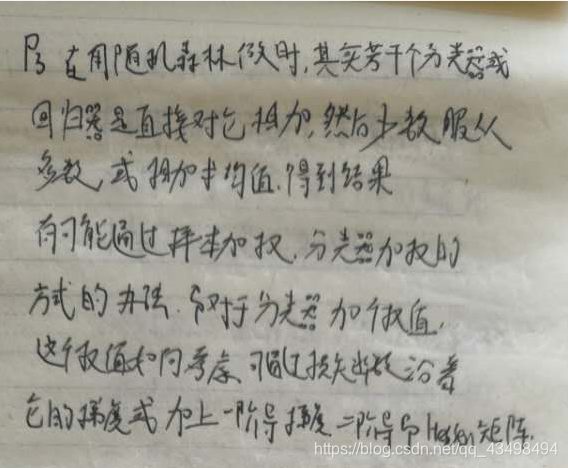 在用随机森林做时,其实若干个分类器或
回归器是直接对它相加,然后少数服从
多数,或相加求均值.得到结果
有可能通过样本加权,分类器加权的
方式的办法.即对于分类器加个权值.
这个权值如何考虑,可通过损失函数沿着
它的梯度或加上一阶导梯度二阶导即 矩阵.
https://blog.csdn.net/qq_43493494